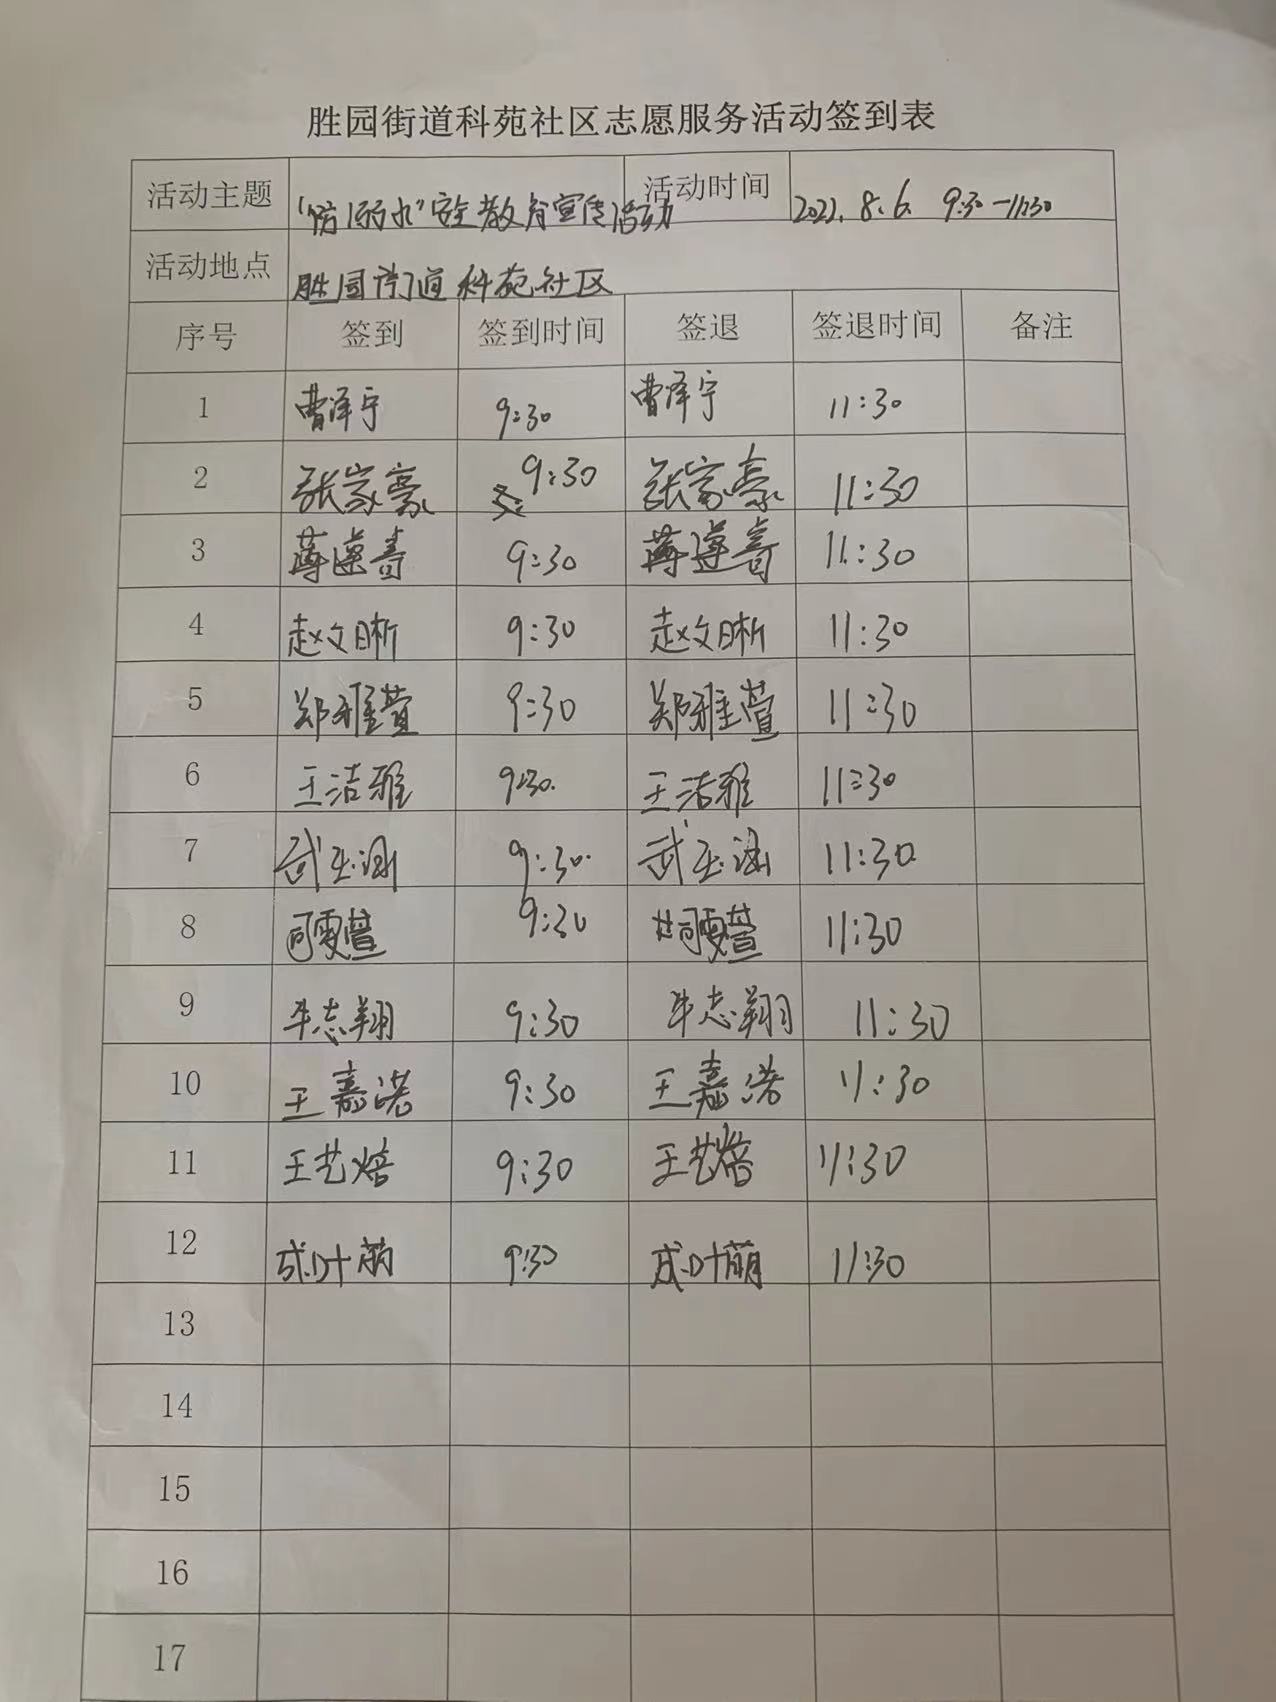 胜园街道科苑社区志愿服务活动签到表
活动主题 "防溺水"安全教育宣传活动 活动时间 2022. 8.6. 9:30-11:30
活动地点 胜园街道科苑社区
序号 签到 签到时间 签退 签退时间 备注
1 曹泽宁 9:30 曹泽宁 11:30
2 张家豪 9:30 张家豪 11:30
3 9:30 11:30
4 赵文晰 9:30 赵文晰 11:30
5 郑雅萱 9:30 郑雅萱 11:30
6 王洁雅 9:30. 王洁雅 11:30
7 武玉涵 9:30. 武玉涵 11:30
8 9:30 11:30
9 牛志翔 9:30 牛志翔 11:30
10 王嘉诺 9:30 王嘉诺 11:30
11 王艺焙 9:30 王艺焙 11:30
12 成叶萌 9:30 成叶萌 11:30
13
14
15
16
17